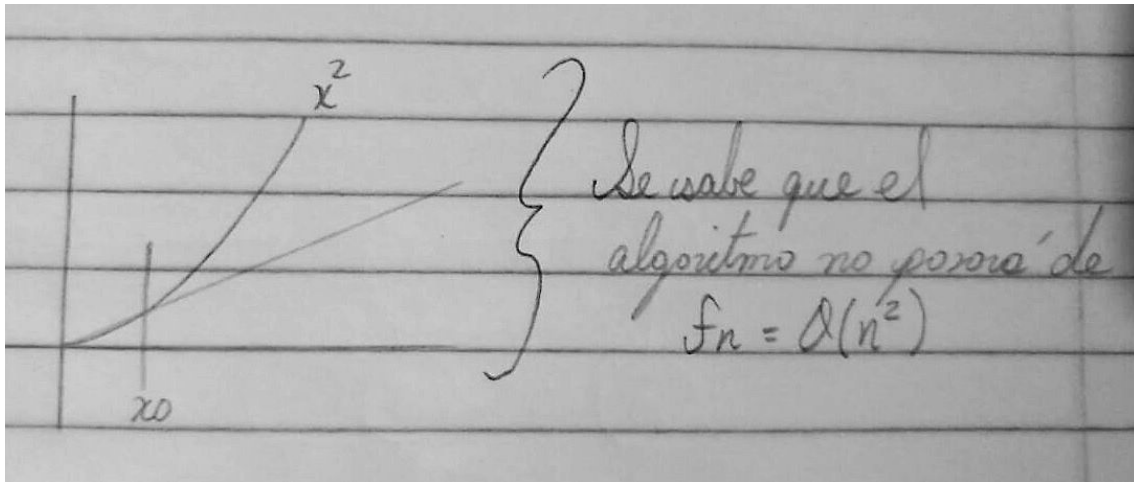 x²
x0
Se sabe que el
algoritmo no pasará de
fn = O(n²)